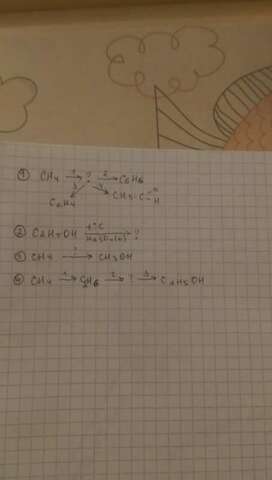 ① CH4 →1 ? →2 C6H6
3 4
C2H4 CH3-C-H
② C2H5OH t°C H2SO4(к) ?
③ CH4 →? CH3OH
④ CH4 →1 C2H6 →2 ? →3 C2H5OH